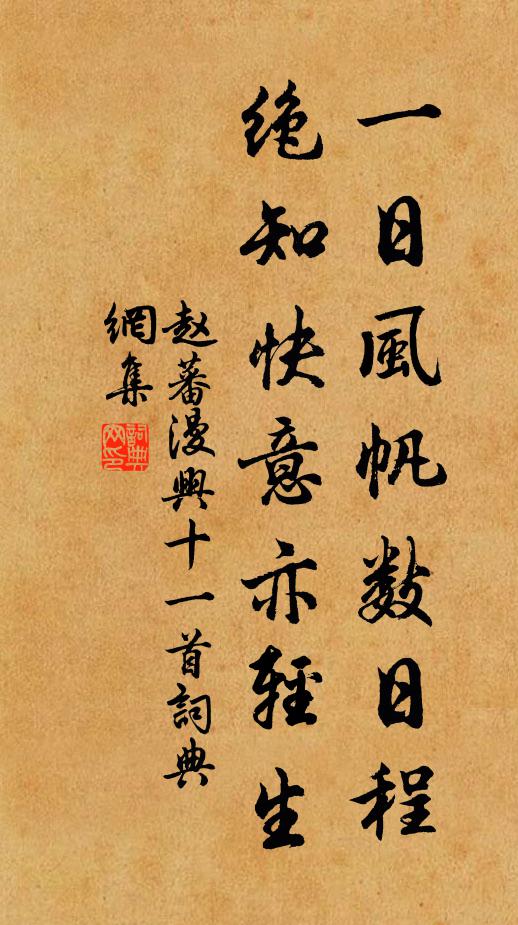 一日風帆数日程
绝知快意亦輕生
赵蕃漫興十一首詞典
網集
詞典網印